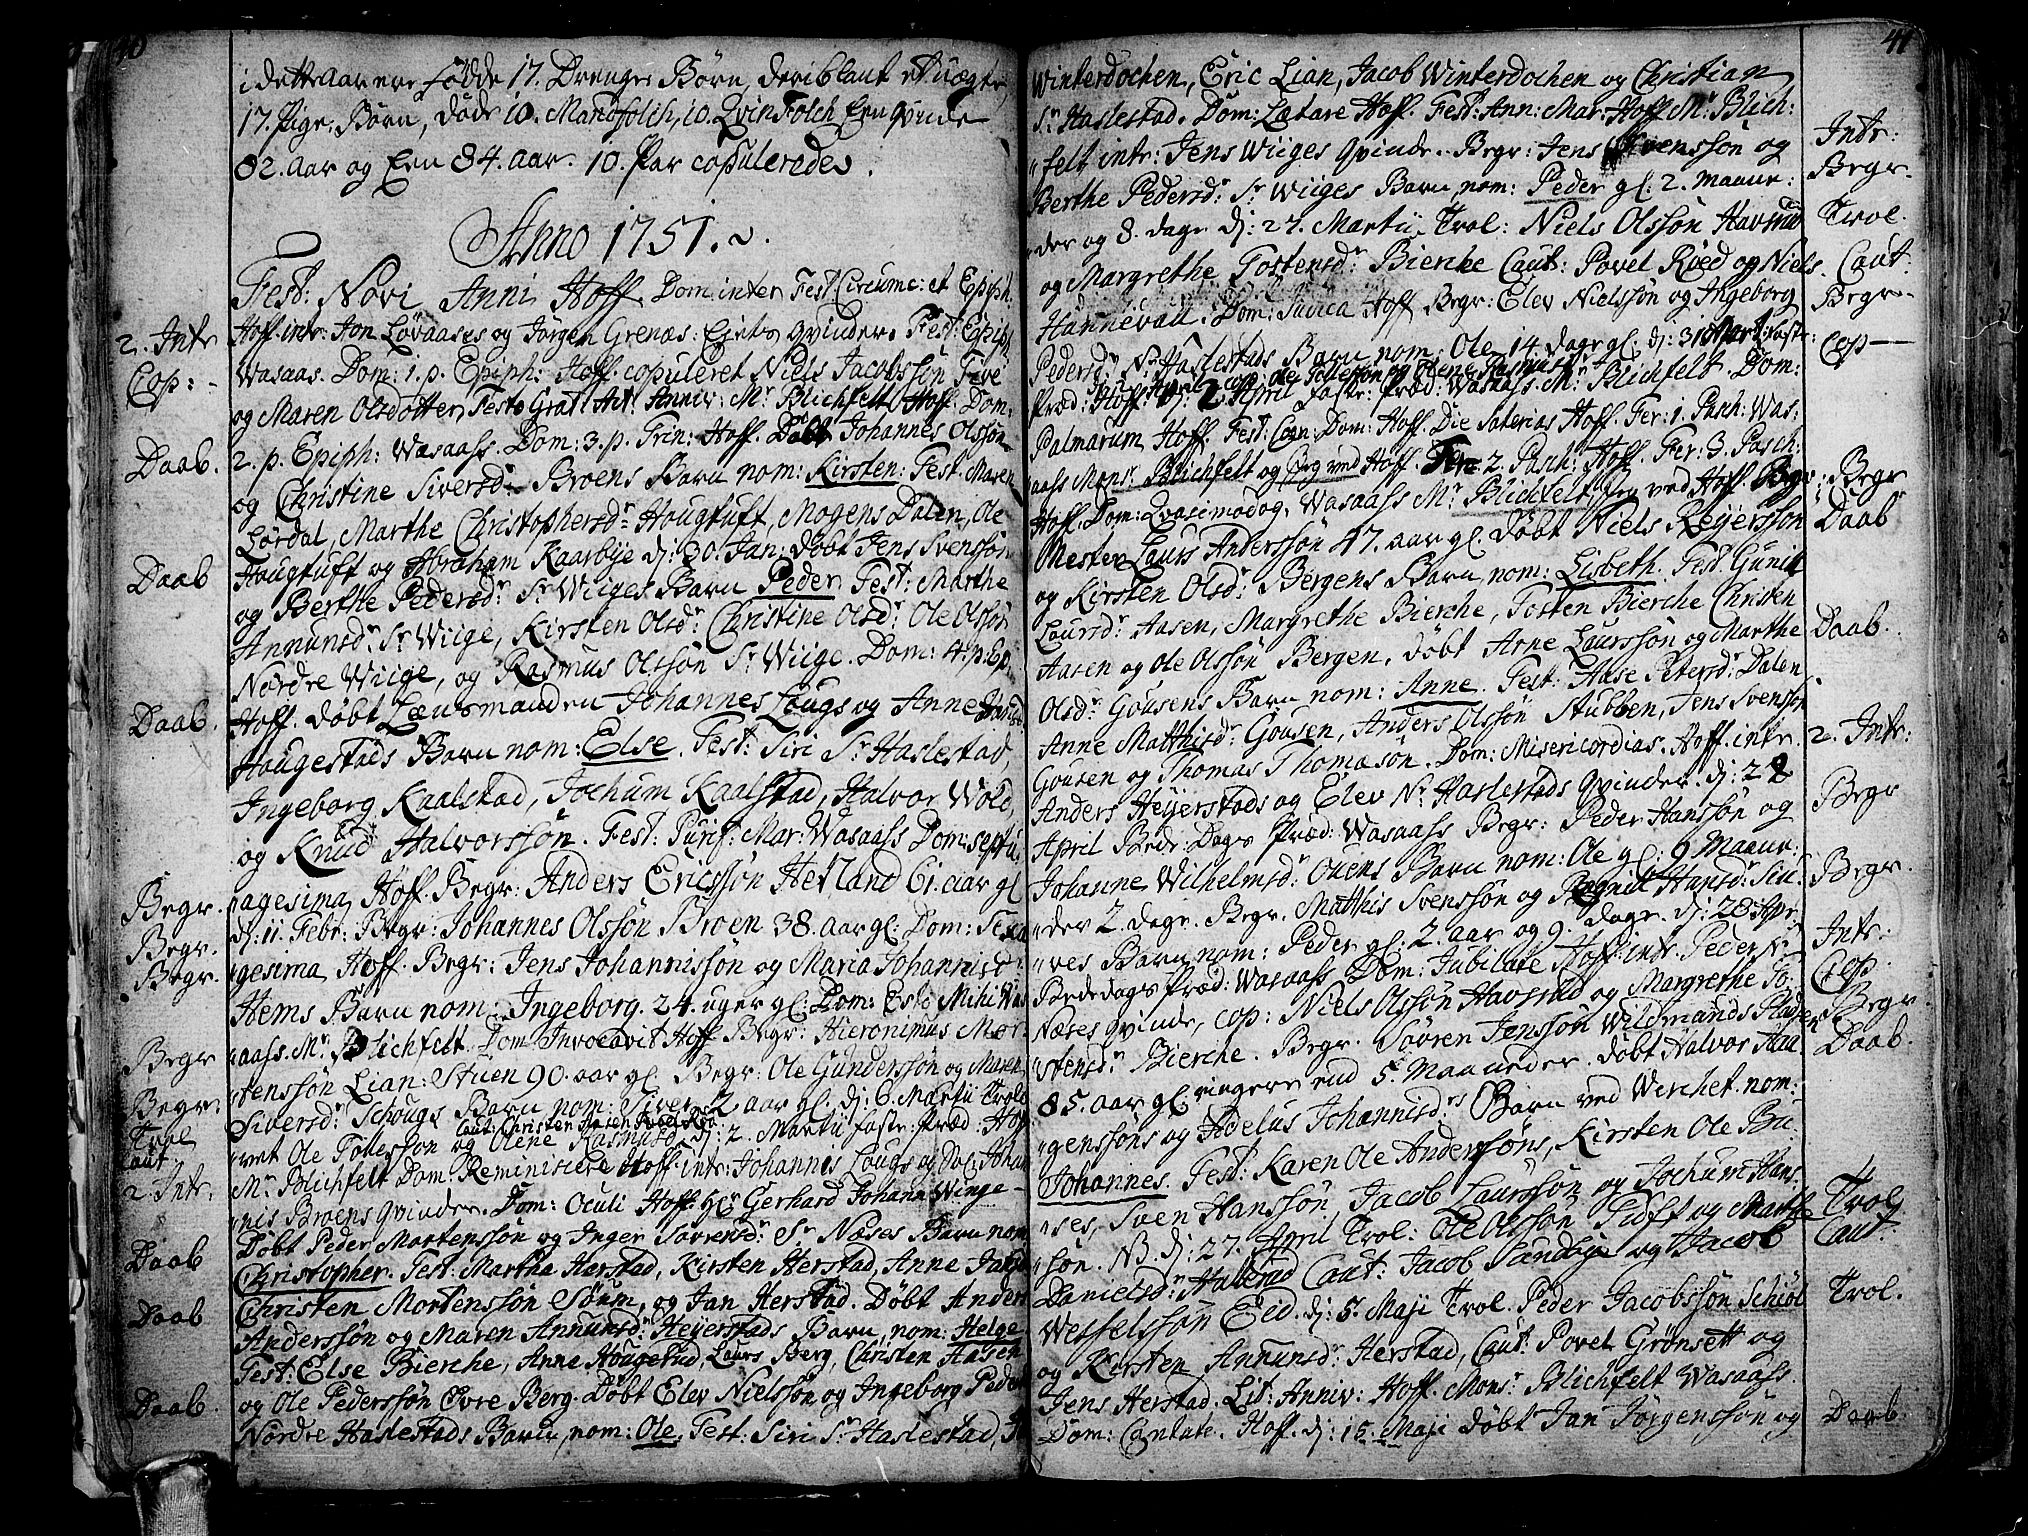 40
i dette Aar ere fødde 17. Drenge Børn, deriblant et uægte,
17. Pige-Børn, døde 10. Mandfolch, 10. Qvindfolch Een qvinde
82. aar og Een 84. aar. 10. Par copulerede.
Anno 1751.
Fest: Novi Anni Hoff. Dom. inter Fest: Circumc: et Epiph:
2. Intr
Hoff. intr: Jon Løvaases og Jørgen Grenæs: Eiets qvinder. Fest: Epiph
Cop:
Wasaas. Dom: 1. p. Epiph: Hoff. copuleret Niels Jacobssøn
og Maren Olsdotter, Festo Grat: Act: Anniv: Mr Blichfelt Hoff. Dom:
2. p. Epiph: Wasaass. Dom: 3. p. Trin: Hoff. Døbt Johannes Olssøn
Daab.
og Christine Siversdr Broens Barn nom: Kirsten: Fest. Maren
Lørdal, Marthe Christophersdr Hougtuft, Mogens Dalen, Ole
Hougtuft og Abraham Kaarbye dj: 30. Jan: døbt Jens Svenssøn
Daab
og Berthe Pedersdr Sr Wiiges Barn Peder. Fest: Marthe
Annunsdr Sr Wiige, Kirsten Olsdr Christine Olsdr Ole Olssøn
Nordre Wiige, og Rasmus Olssøn Sr Wiige. Dom: 4. p. Ep.
Daab.
Hoff. døbt Lænsmanden Johannes Lougs og Anne
Hougestads Barn nom: Else. Fest: Siri Sr Haslestad,
Ingeborg Kaalstad, Jochum Kaalstad, Halvor Wold,
og Knud Halvorssøn. Fest: Purif: Mar: Wasaass Dom: septu
Begr.
agesima, Hoff. Begr: Anders Ericssøn Hetland 61. aar gl
Begr.
dj: 11. Febr: Begr: Johannes Olssøn Broen 38. aar gl: Dom: Sexa
Begr.
gesima Hoff. Begr: Jens Johannissøn og Maria Johannisdr
Hems Barn nom: Ingeborg. 24. uger gl: Dom: Esto Mihi Was
aass. Mr Blichfelt. Dom: Invocavit Hoff Begr: Hieronimus Mor
Begr
tenssøn Lian: Stuen 90. aar gl. Begr: Ole Gunderssøn og Maren
Begr:
Siversdr Schougs Barn nom: Siver 2 aar gl. dj: 6. Martii Trolo
Caut: Christen Aasen Povel Røe
Trol
vet Ole Tollessøn og Olene Rasmusdr dj: 2. Martii faste-Præd: Hoff
Caut.
2. Intr.
Mr Blichfelt Dom: Reminiscere Hoff intr: Johannes Lougs og Johan
nis Broens qvinder. Dom: Oculi Hoff. Hr Gerhard Johann Winge
Døbt Peder Mortenssøn og Inger Sørrensdr Sr Næses Barn nom
Daab
Christopher. Fest: Marthe Harstad, Kirsten Herstad, Anne
Christen Mortenssøn Sørum, og Jan Herstad. Døbt Anders
Daab
Anderssøn og Maren Annunsdr Heyerstads Barn, nom: Helge
Fest: Else Bierche, Anne Hougerud, Laurs Berg, Christen Aasen
og Ole Pederssøn Evre Berg. Døbt Elev Nielssøn og Ingeborg Peders
Daab.
Nordre Haslestads Barn, nom: Ole. Fest: Siri Sr Haslestad,
41
Winterdochen, Eric Lian, Jacob Winterdochen og Christian
Sr Haslestad. Dom: Lætare Hoff. Fest: Ann: Mar: Hoff Mr Blich:
Intr:
felt intr: Jens Wiiges qvinde. Begr: Jens Svenssøn og
Begr.
Berthe Pedersdr Sr Wiiges Barn, nom: Peder gl: 2. maane:
Trol.
der og 8. dage dj: 27. Martii Trol: Niels Olssøn Havsrud
Caut.
og Margrethe Tostensdr Bierche Caut: Povel Røed og Niels
Begr.
Hannevall. Dom: Judica Hoff Begr: Elev Nielssøn og Ingeborg
Cop
Pedersdr Nr Haslestads Barn nom: Ole 14 dage gl. dj: 31 Mart: faste:
Præd: Hoff. April cop. Ole Tollessøn og Olene Rasmusdr
dj: 2. April faste: Præd: Wasaass Mr Blichfelt. Dom:
Palmarum Hoff. Fest: Coen: Dom: Hoff. Die Saterias Hoff. Fer: 1. Pasch: Was:
aass Monsr Blichfelt og Jeg ved Hoff. Fer 2. Pasch: Hoff. Fer: 3. Pasch:
Begr
Hoff. Dom: Qvasimodog. Wasaass Mr Blichfelt, Jeg ved Hoff. Begr:
Daab
Mester Laurs Anderssøn 47. aar gl. døbt Niels Reyerssøn
og Kirsten Olsdr Bergens Barn nom: Lisbeth. Fest: Gunil
Laursdr Aasen, Margrethe Bierche, Tosten Bierche Christen
Daab.
Aasen og Ole Olssøn Bergen, døbt Arne Laurssøn og Marthe
Olsdr Gousens Barn nom: Anne. Fest: Aase Petersdr Dalen
Anne Matthisdr Gousen, Anders Olssøn Stubben, Jens Svenssøn
2. Intr:
Gousen og Thomas Thomæsøn. Dom: Misericordias. Hoff. intr.
Anders Heyerstads og Elev Nr Haslestads qvinder. dj: 22
Begr
April Bede-Dags Præd: Wasaass Begr: Peder Hanssøn og
Johanne Wilhelmsdr Ouens Barn nom: Ole gl: 9 Maane:
Begr.
der 2. dage. Begr. Matthis Svenssøn og Regnil Hansdr Siu:
ves Barn nom: Peder gl: 2. aar og 9. dage. dj: 28 Apr:
Intr.
Bededags Præd: Wasaass Dom: Jubilate Hoff: intr. Peder Nr
Cop.
Næses qvinde, cop: Niels Olssøn Havsrud og Margrethe To:
Begr
stensdr Bierche. Begr. Søvren Jenssøn Wildmands Pladsen
Daab.
85. aar gl. ringere end 5. Maaneder. døbt Halvor Haa:
genssøns og Adelus Johannisdrs Barn ved Werchet nom:
Johannes. Fest: Karen Ole Anderssøns, Kirsten Ole Bu:
ses, Sven Hanssøn, Jacob Laurssøn og Jochum Hans:
Trol
søn. NB dj: 27. April Trol: Ole Olssøn Tuft og Marthe
Caut.
Danielsdr Hallstad Caut: Jacob Sundbye og Jacob
Trol.
Wesselssøn Eed. dj: 5. Maji Trol. Peder Jacobssøn Schiøl
og Kirsten Annunsdr Herstad, Caut: Povel Grønsett og
Jens Herstad. Lit: Anniv: Hoff. Monsr Blichfelt Wasaass.
Daab
Dom: Cantate. Hoff. dj: 15. Maji døbt Jan Jørgenssøn og